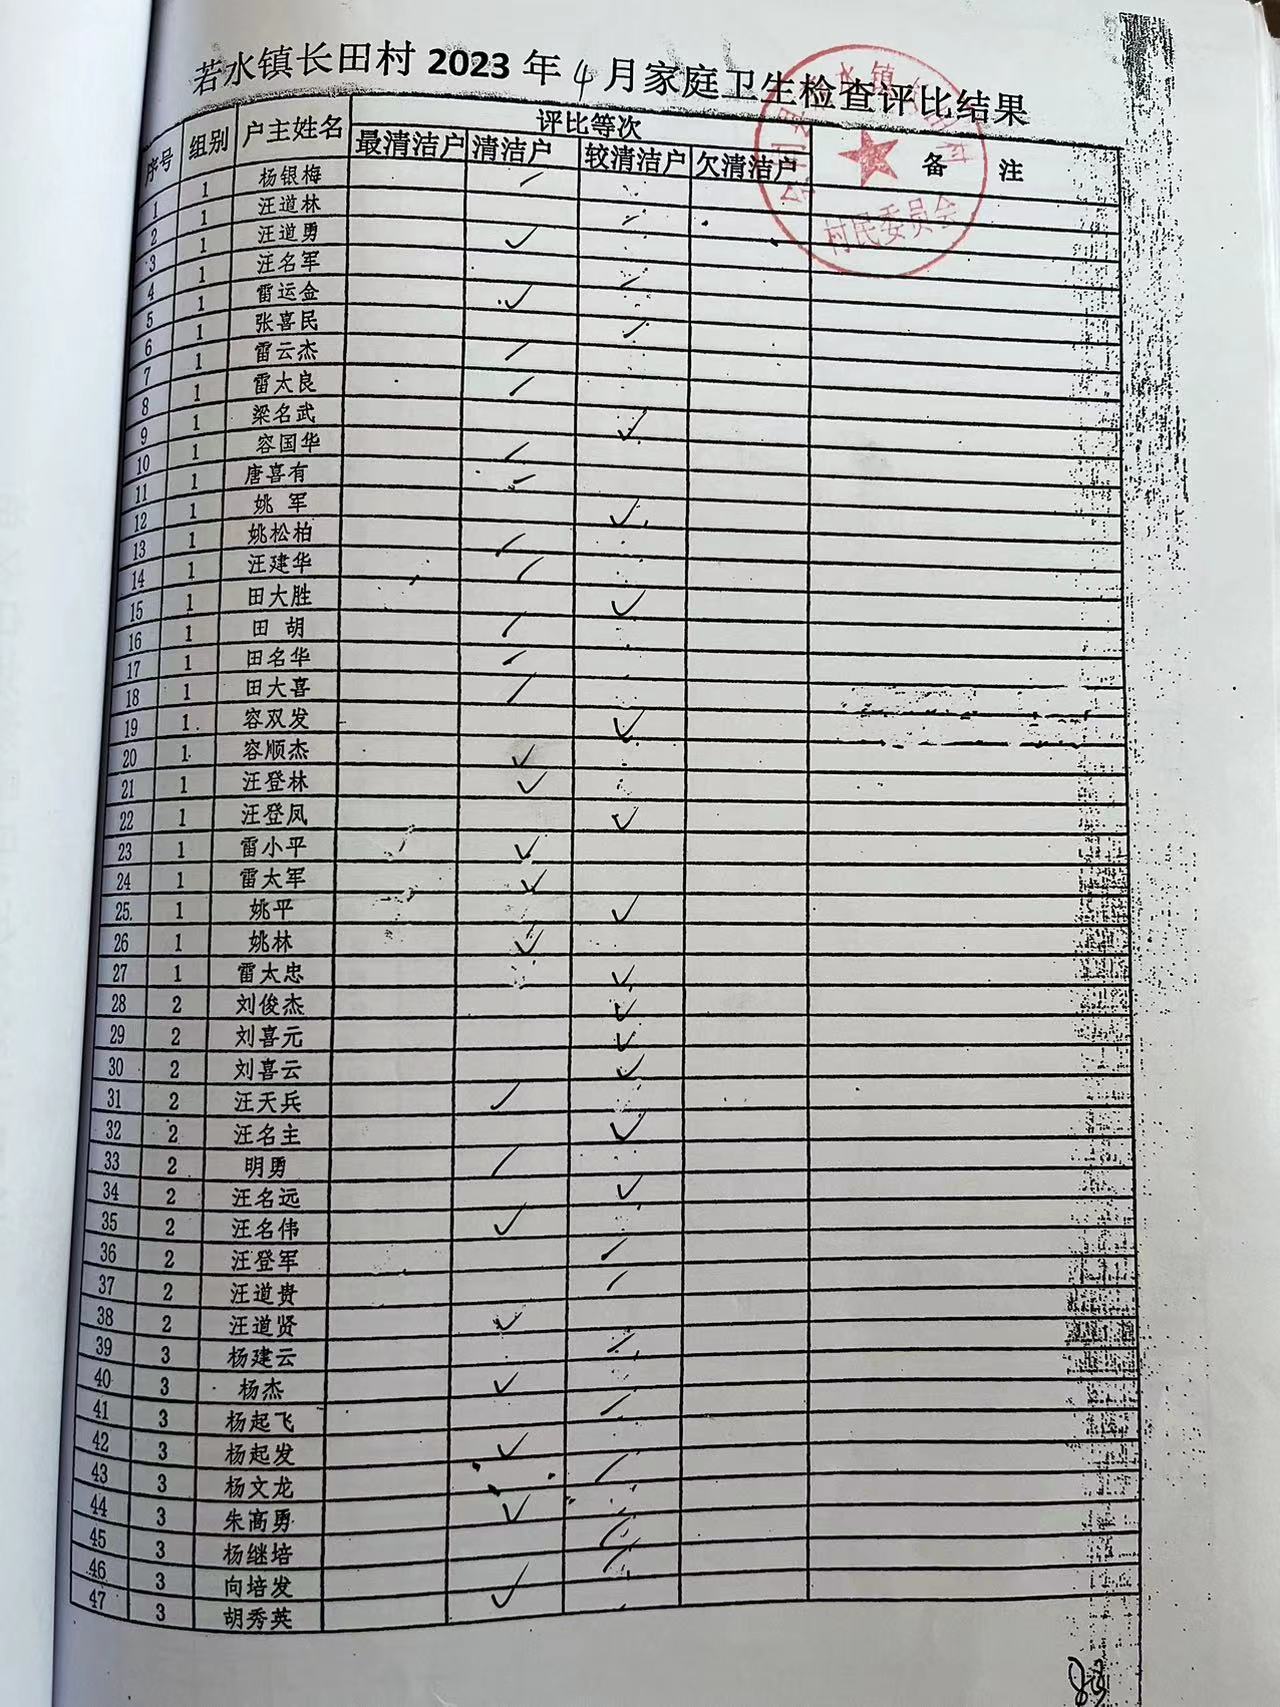 若水镇长田村 2023 年 4 月家庭卫生检查评比结果
序号 组别 户主姓名 评比等次 备 注
最清洁户 清洁户 较清洁户 欠清洁户
村民委员会
1 1 杨银梅
2 1 汪道林
3 1 汪道勇
4 1 汪名军
5 1 雷运金
6 1 张喜民
7 1 雷云杰
8 1 雷太良
9 1 梁名武
10 1 容国华
11 1 唐喜有
12 1 姚 军
13 1 姚松柏
14 1 汪建华
15 1 田大胜
16 1 田 胡
17 1 田名华
18 1 田大喜
19 1 容双发
20 1 容顺杰
21 1 汪登林
22 1 汪登凤
23 1 雷小平
24 1 雷太军
25 1 姚平
26 1 姚林
27 1 雷太忠
28 2 刘俊杰
29 2 刘喜元
30 2 刘喜云
31 2 汪天兵
32 2 汪名主
33 2 明勇
34 2 汪名远
35 2 汪名伟
36 2 汪登军
37 2 汪道贵
38 2 汪道贤
39 3 杨建云
40 3 杨杰
41 3 杨起飞
42 3 杨起发
43 3 杨文龙
44 3 朱高勇
45 3 杨继培
46 3 向培发
47 3 胡秀英